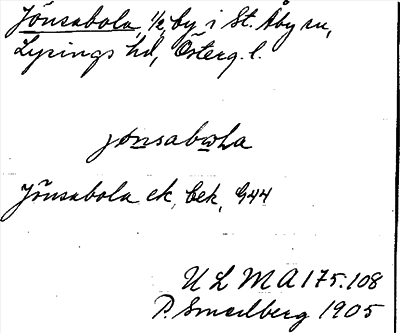 Jönsabola, ½, by i St. Åby sn,
Lysings hd, Österg. l.
jönsabωla
Jönsabola ek, bek, G44
ULMA 175.108
P. Smedberg 1905